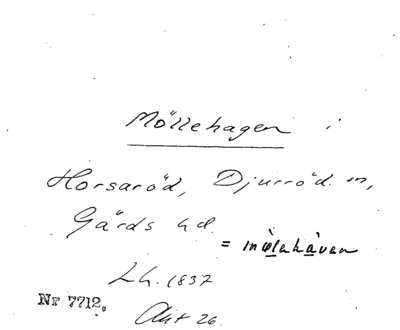 Möllehagen i
Horsaröd, Djurröd sn,
Gärds hd.
= mø̀lahàvan
Lh. 1837
Nr 7712.
Akt 26